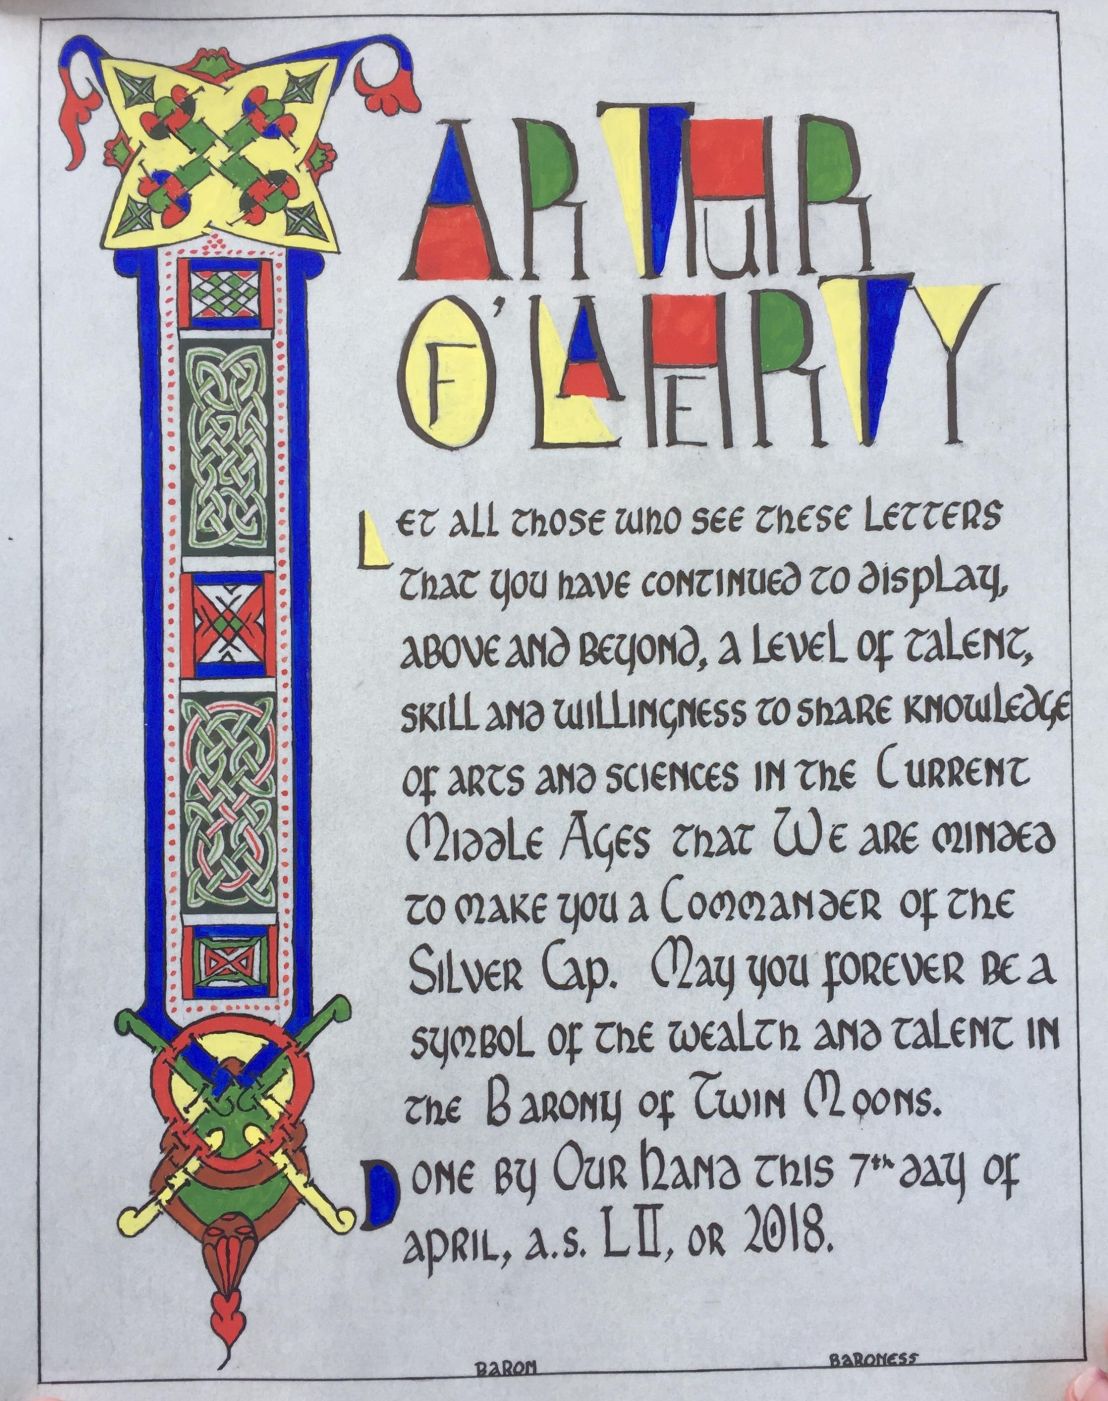 ARTHUR
O'FLAHERTY
Let all those who see these Letters
that you have continued to display,
above and beyond, a level of talent,
skill and willingness to share knowledge
of arts and sciences in the Current
Middle Ages that We are minded
to make you a Commander of the
Silver Cap. May you forever be a
symbol of the wealth and talent in
the Barony of Twin Moons.
Done by Our Hand this 7th day of
April, a.s. LII, or 2018.
BARON BARONESS